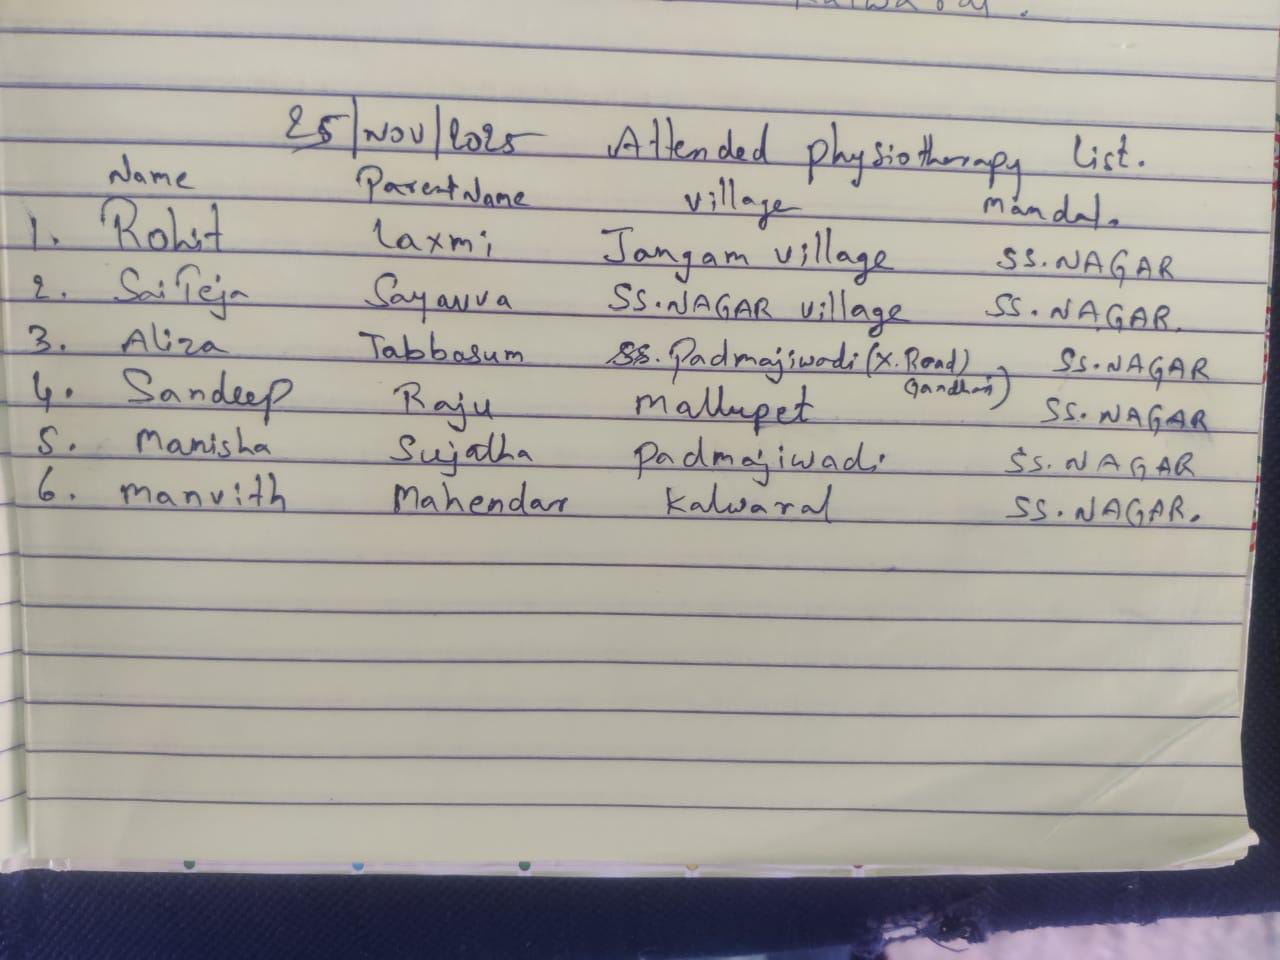 25/NOV/2025 Attended physiotherapy List.
Name Parent Name village Mandal.
1. Rohit Laxmi Jangam village SS.NAGAR
2. Sai Teja Sayavva SS.NAGAR village SS.NAGAR.
3. Aliza Tabbasum Padmajiwadi (X.Road) SS.NAGAR
Gandhari)
4. Sandeep Raju Mallupet SS.NAGAR
5. Manisha Sujatha Padmajiwadi SS.NAGAR
6. Manvith Mahendar Kalwaral SS.NAGAR.